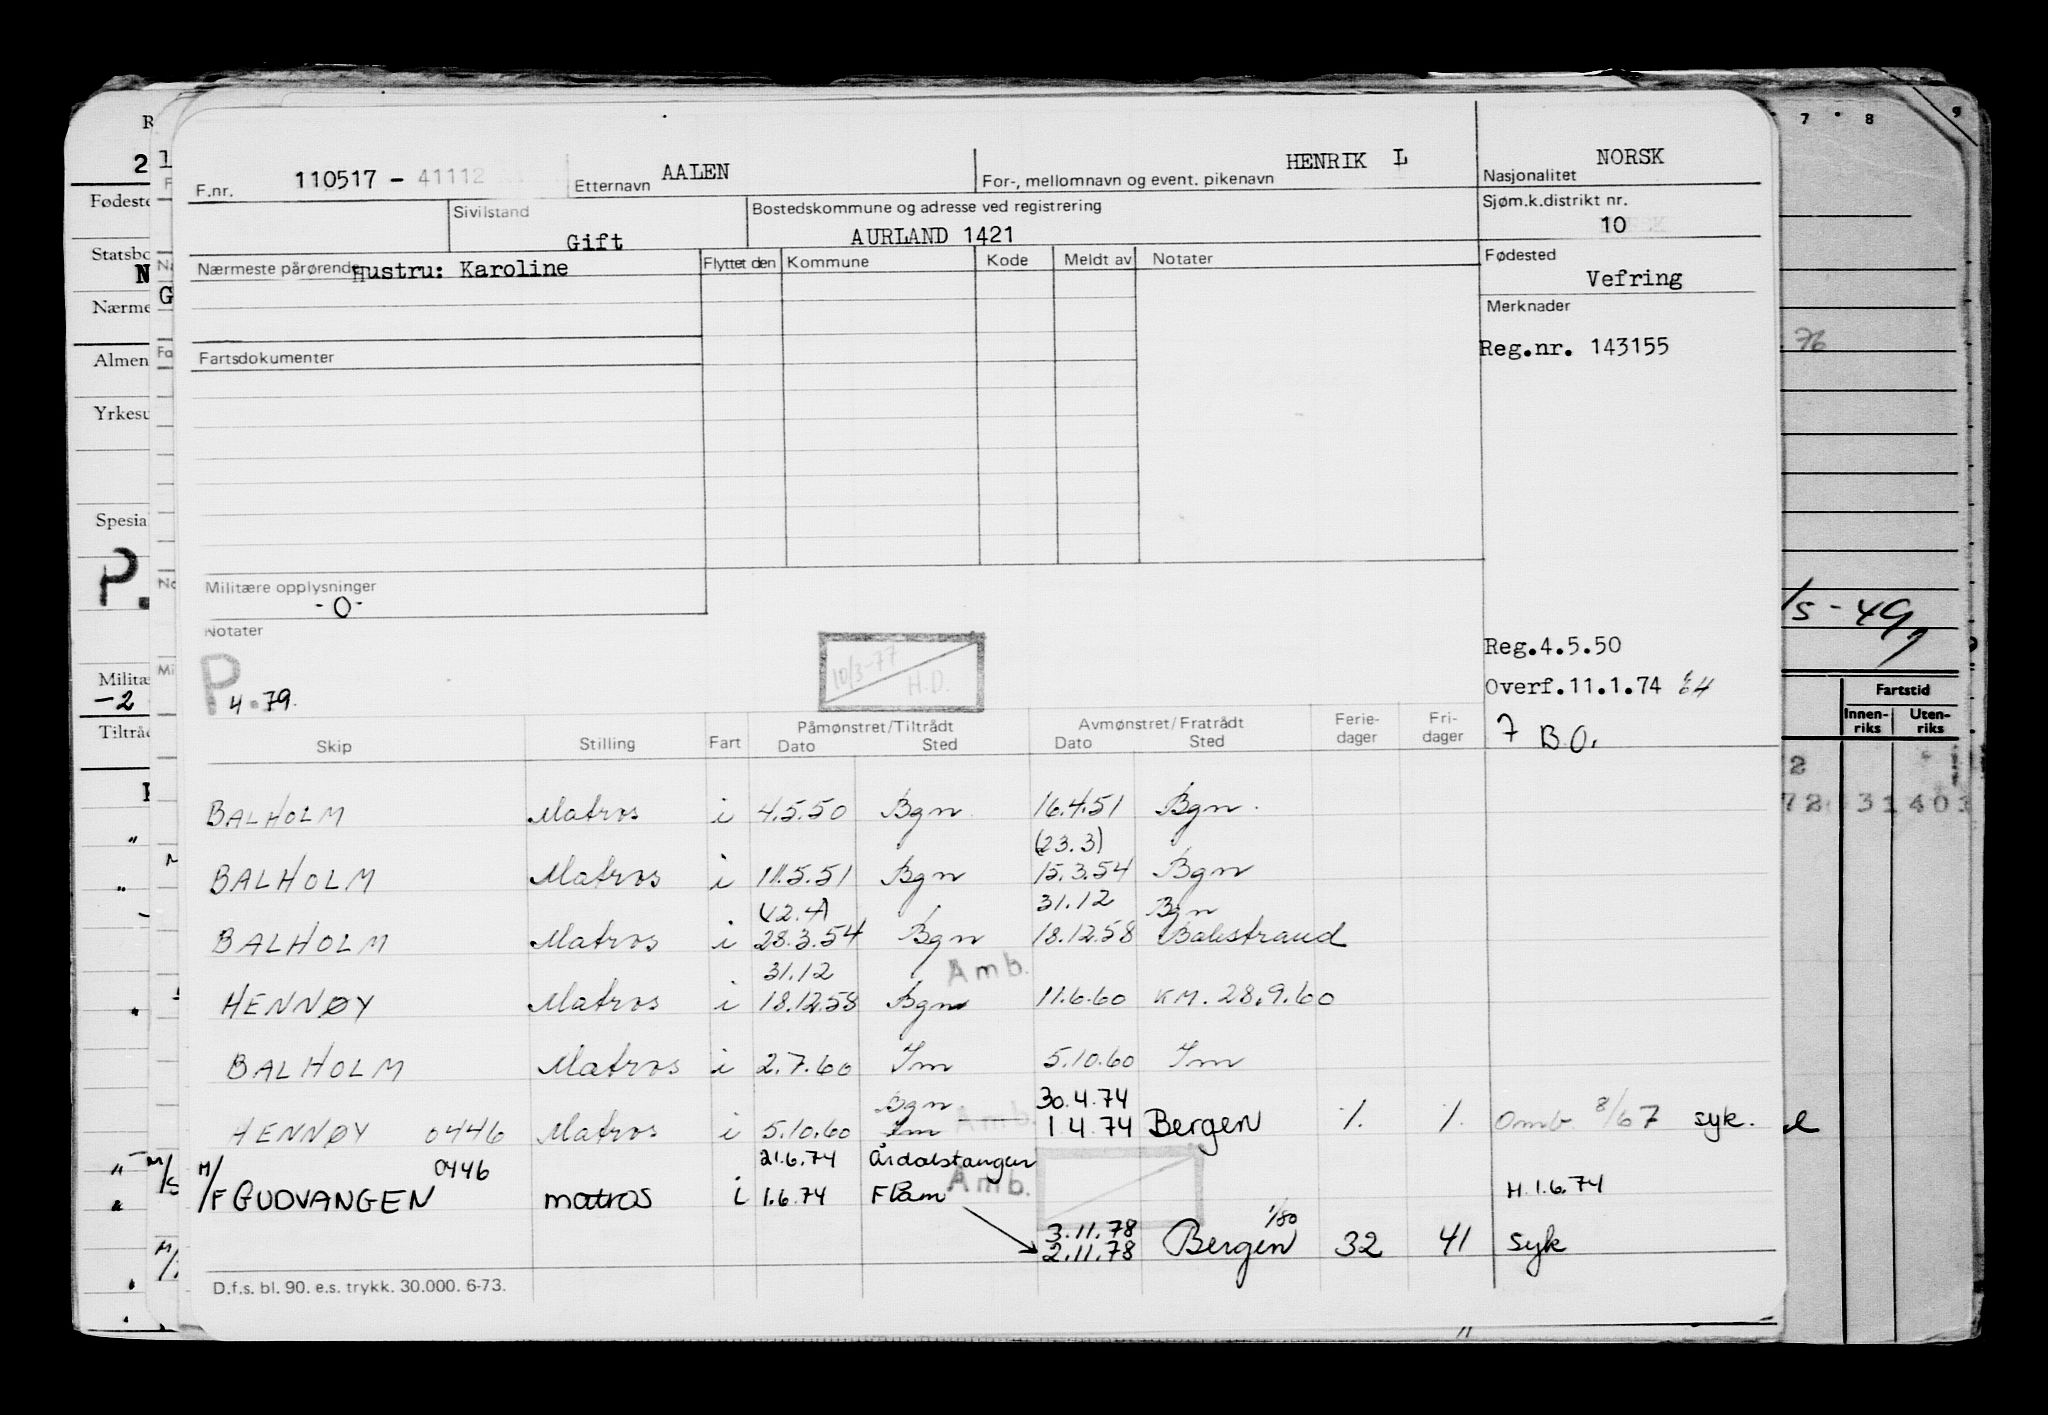 F.nr. 110517 - 41112 Etternavn AALEN For-, mellomnavn og event. pikenavn HENRIK L Nasjonalitet NORSK
Sivilstand Gift Bostedskommune og adresse ved registrering AURLAND 1421 Sjøm.k.distrikt nr. 10
Nærmeste pårørende Hustru: Karoline Flyttet den Kommune Kode Meldt av Notater Fødested Vefring
Merknader
Fartsdokumenter Reg.nr. 143155
Militære opplysninger
-0-
Notater
P 4.79.
10/3-77
H.D.
Reg.4.5.50
Overf.11.1.74
7 B.O.
Skip Stilling Fart Påmønstret/Tiltrådt Dato Sted Avmønstret/Fratrådt Dato Sted Ferie-dager Fri-dager
BALHOLM Matros i 4.5.50 Bgn 16.4.51 Bgn.
(23.3)
BALHOLM Matros i 11.5.51 Bgn 15.3.54 Bgn
31.12 Bgn
BALHOLM Matros i 28.3.54 Bgn 18.12.58 Balestrand
31.12 Amb.
HENNØY Matros i 18.12.58 Bgn 11.6.60 KM. 28.9.60
BALHOLM Matros i 2.7.60 Im 5.10.60 Im
Bgn 30.4.74
HENNØY 0446 Matros i 5.10.60 Im Amb. 1.4.74 Bergen Omb 8/67 syk.
0446 21.6.74 Årdalstangen
M/F GUDVANGEN matros i 1.6.74 Flåm Amb. H.1.6.74
3.11.78 1/80
2.11.78 Bergen 32 41 syk
D.f.s. bl. 90. e.s. trykk. 30.000. 6-73.
7 8 9
76
/5-49,
Fartstid
Innen-riks Uten-riks